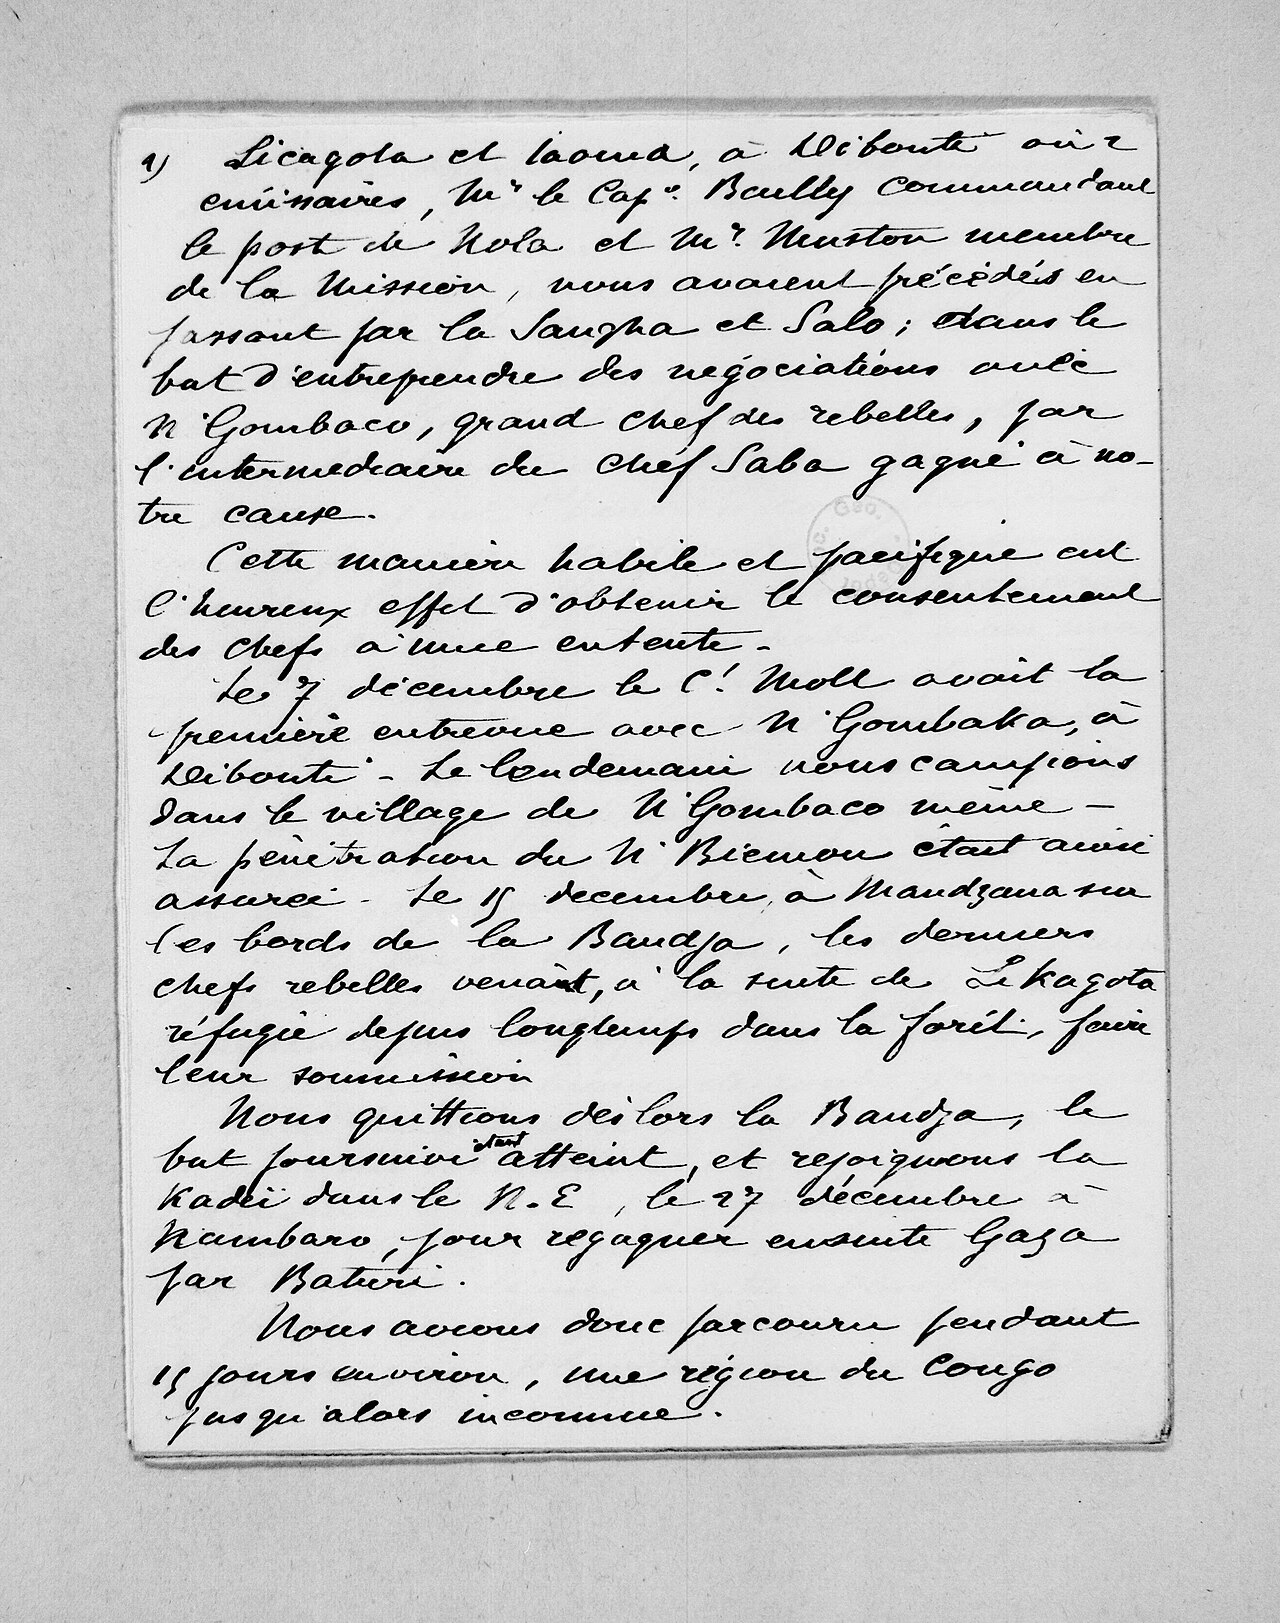 2) Licagota et Iaoua, à Dibonté où 2
émissaires, Mr le Cape. Bailly Commandant
le post de Nola et Mr. Muston membre
de la Mission, nous avaient précédés en
passant par la Sangha et Salo; dans le
but d'entreprendre des négociations avec
N'Gombaco, grand chef des rebelles, par
l'intermediaire du chef Saba gagné à no-
tre cause.
Cette manière habile et pacifique eut
l'heureux effet d'obtenir le consentement
des chefs à une entente.
Le 7 décembre le Ct. Moll avait la
première entrevue avec N'Gombaka, à
Dibonté - Le lendemain nous campions
dans le village de N'Gombaco même -
La pénétration du N'Biemou était ainsi
assurée - Le 15 decembre, à Mandzana sur
les bords de la Bandja, les derniers
chefs rebelles venant, à la suite de Likagota
réfugié depuis longtemps dans la forêt, faire
leur soumission
Nous quittions dès lors la Bandja, le
but poursuivi étant atteint, et rejoignons la
Kadéï dans le N.E, le 27 décembre à
Nambaro, pour regagner ensuite Gaza
par Baturi.
Nous avions donc parcouru pendant
15 jours environ, une région du Congo
jusqu'alors inconnue.